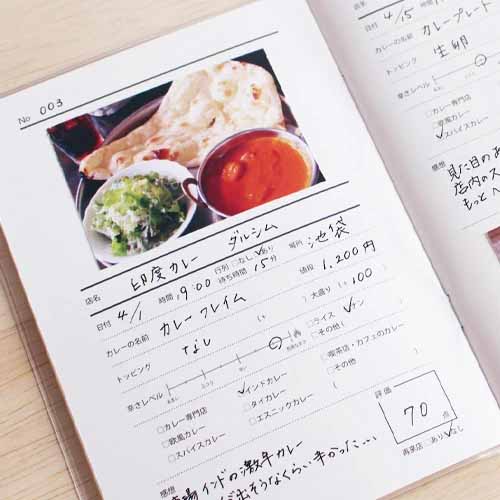 No 003
店名 印度カレー ダルシム
日付 4/1 時間 19:00 行列 □なし ☑あり 待ち時間 15分 場所 池袋
カレーの名前 カレーフレイム 値段 1,200円
トッピング なし (+ ) 大盛り (+ 100 )
辛さレベル □ライス ☑ナン □その他 ( )
□カレー専門店 ☑インドカレー □喫茶店・カフェのカレー
□欧風カレー □タイカレー □その他 ( )
□スパイスカレー □エスニックカレー
評価 70 点
再来店 □あり ☑なし
感想
インドの激辛カレー
が出そうなくらい辛かった…
日付 4/15 時間
カレーの名前 カレープレート
トッピング 生卵
辛さレベル
□カレー専門店
□欧風カレー
☑スパイスカレー
感想 見た目の
店内のス
もっと